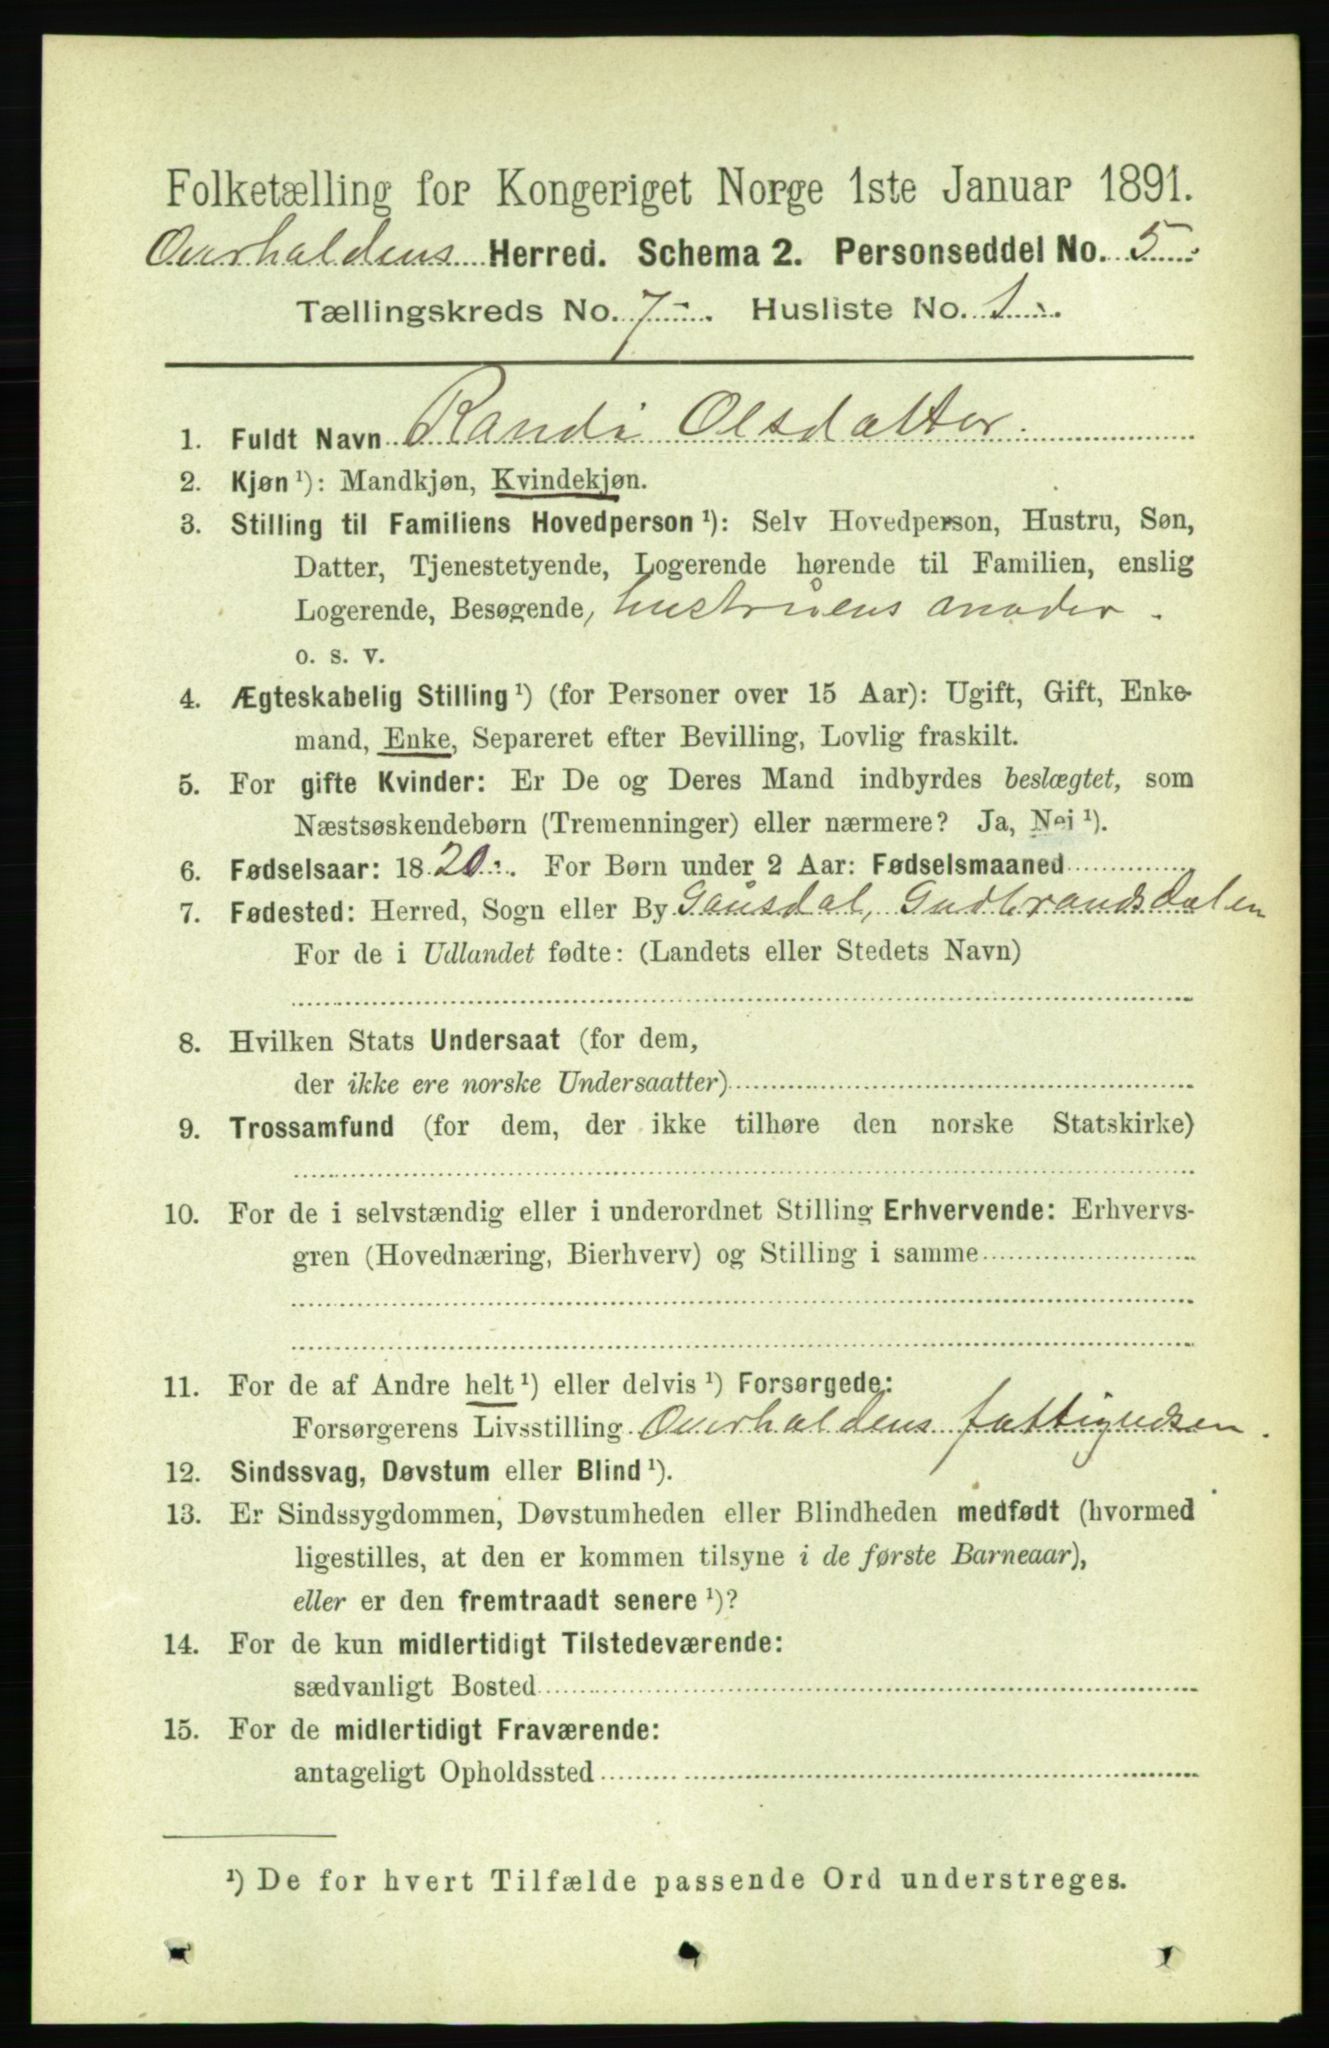 Folketælling for Kongeriget Norge 1ste Januar 1891.
Overhaldens Herred. Schema 2. Personseddel No. 5
Tællingskreds No. 7. Husliste No. 1.
1. Fuldt Navn Randi Olsdatter.
2. Kjøn ¹): Mandkjøn, Kvindekjøn.
3. Stilling til Familiens Hovedperson ¹): Selv Hovedperson, Hustru, Søn,
Datter, Tjenestetyende, Logerende hørende til Familien, enslig
Logerende, Besøgende, hustruens moder.
o. s. v.
4. Ægteskabelig Stilling ¹) (for Personer over 15 Aar): Ugift, Gift, Enke-
mand, Enke, Separeret efter Bevilling, Lovlig fraskilt.
5. For gifte Kvinder: Er De og Deres Mand indbyrdes beslægtet, som
Næstsøskendebørn (Tremenninger) eller nærmere? Ja, Nei ¹).
6. Fødselsaar: 1820. For Børn under 2 Aar: Fødselsmaaned
7. Fødested: Herred, Sogn eller By Gausdal, Gudbrandsdalen
For de i Udlandet fødte: (Landets eller Stedets Navn)
8. Hvilken Stats Undersaat (for dem,
der ikke ere norske Undersaatter)
9. Trossamfund (for dem, der ikke tilhøre den norske Statskirke)
10. For de i selvstændig eller i underordnet Stilling Erhvervende: Erhvervs-
gren (Hovednæring, Bierhverv) og Stilling i samme
11. For de af Andre helt ¹) eller delvis ¹) Forsørgede:
Forsørgerens Livsstilling Overhaldens fattigvæsen.
12. Sindssvag, Døvstum eller Blind ¹).
13. Er Sindssygdommen, Døvstumheden eller Blindheden medfødt (hvormed
ligestilles, at den er kommen tilsyne i de første Barneaar),
eller er den fremtraadt senere ¹)?
14. For de kun midlertidigt Tilstedeværende:
sædvanligt Bosted
15. For de midlertidigt Fraværende:
antageligt Opholdssted
¹) De for hvert Tilfælde passende Ord understreges.